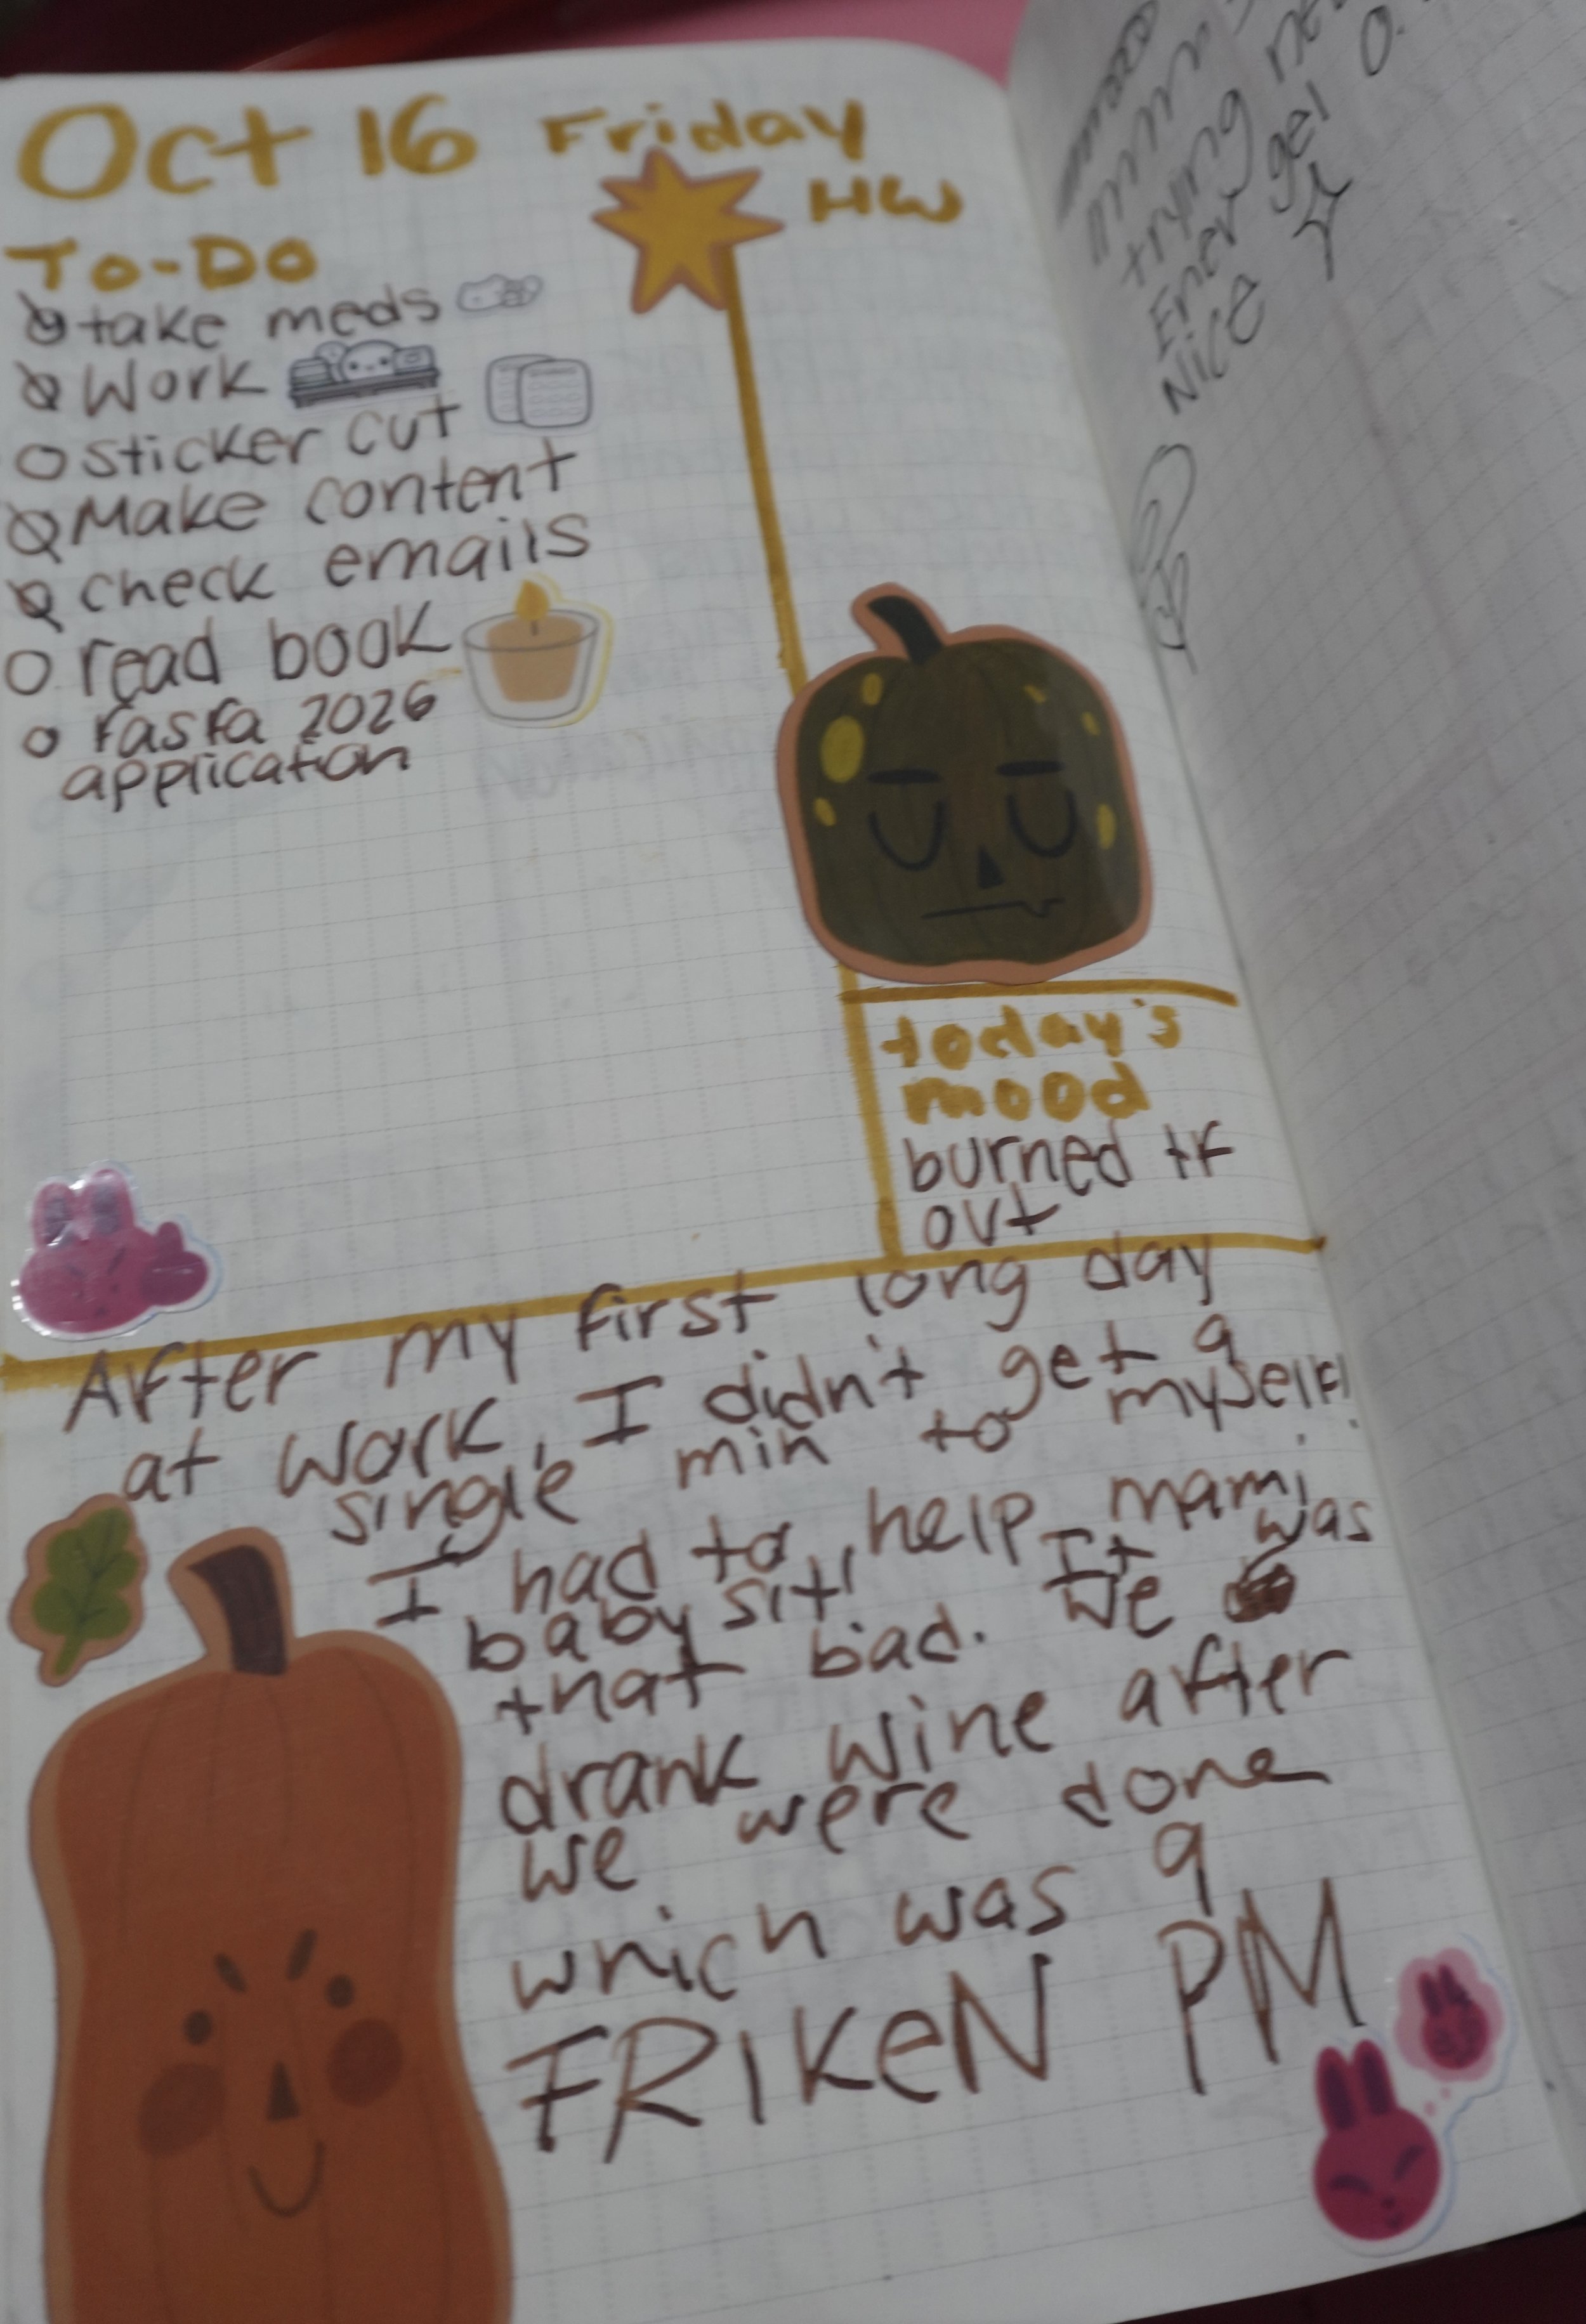 Oct 16 Friday
HW
To-Do
take meds
Work
sticker cut
Make content
check emails
read book
Fasfa 2026
application
today's
mood
burned tf
out
After my first long day
at work, I didn't get a
single min to myself!
I had to help mami
babysit! It was
that bad. We
drank wine after
we were done
which was 9
FRIKEN PM
trying
Ener gel
Nice